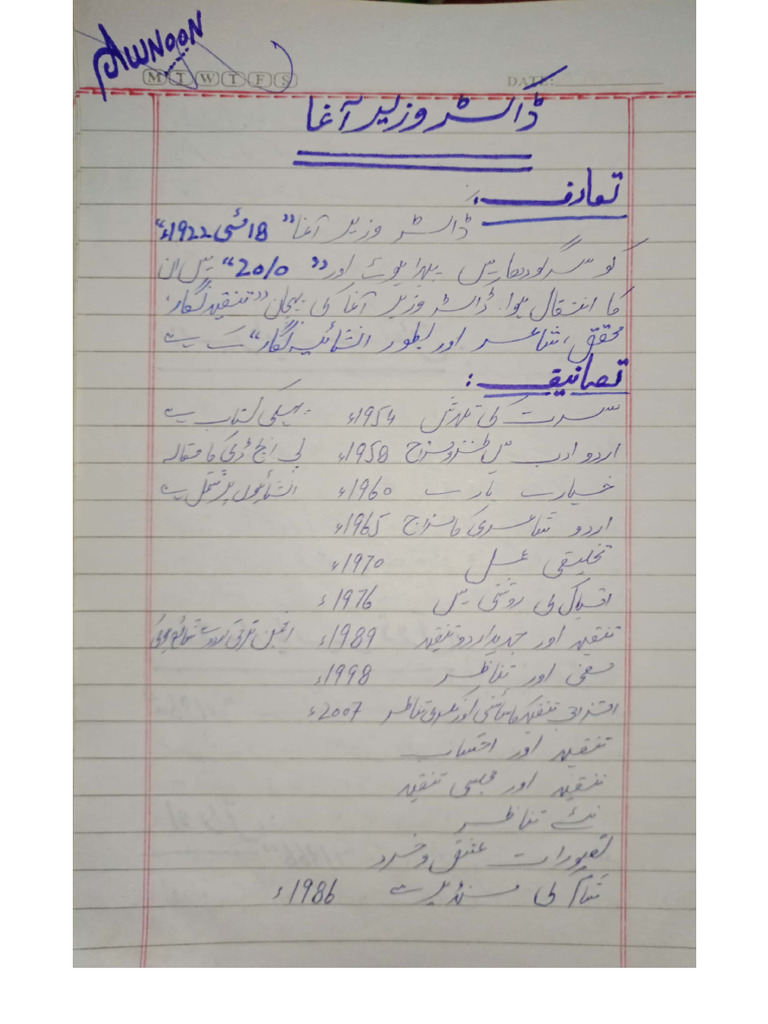 AWNOON
M T W T F S
DATE:
ڈاکٹر وزیر آغا
تعارف:
ڈاکٹر وزیر آغا "18 مئی 1922ء"
کو سرگودھا میں پیدا ہوئے اور "2010" میں ان
کا انتقال ہوا. ڈاکٹر وزیر آغا کی پہچان "تنقید نگار،
محقق، شاعر اور بطور انشائیہ نگار" کے ہے
تصانیف:
مسرت کی تلاش 1954ء پہلی کتاب ہے
اردو ادب میں طنز و مزاح 1958ء پی ایچ ڈی کا مقالہ
خیال پارے 1960ء انشائیوں پر مشتمل ہے
اردو شاعری کا مزاج 1965ء
تخلیقی عمل 1970ء
اقبال کی روشنی میں 1976ء
تنقید اور جدید اردو تنقید 1989ء انجمن ترقی اردو سے شائع ہوئی
معنی اور تناظر 1998ء
امتزاجی تنقید کا سائنسی اور فکری تناظر 2007ء
تنقید اور احتساب
تنقید اور مجلسی تنقید
نئے تناظر
تصورات عشق و خرد
شام کی منڈیر سے 1986ء